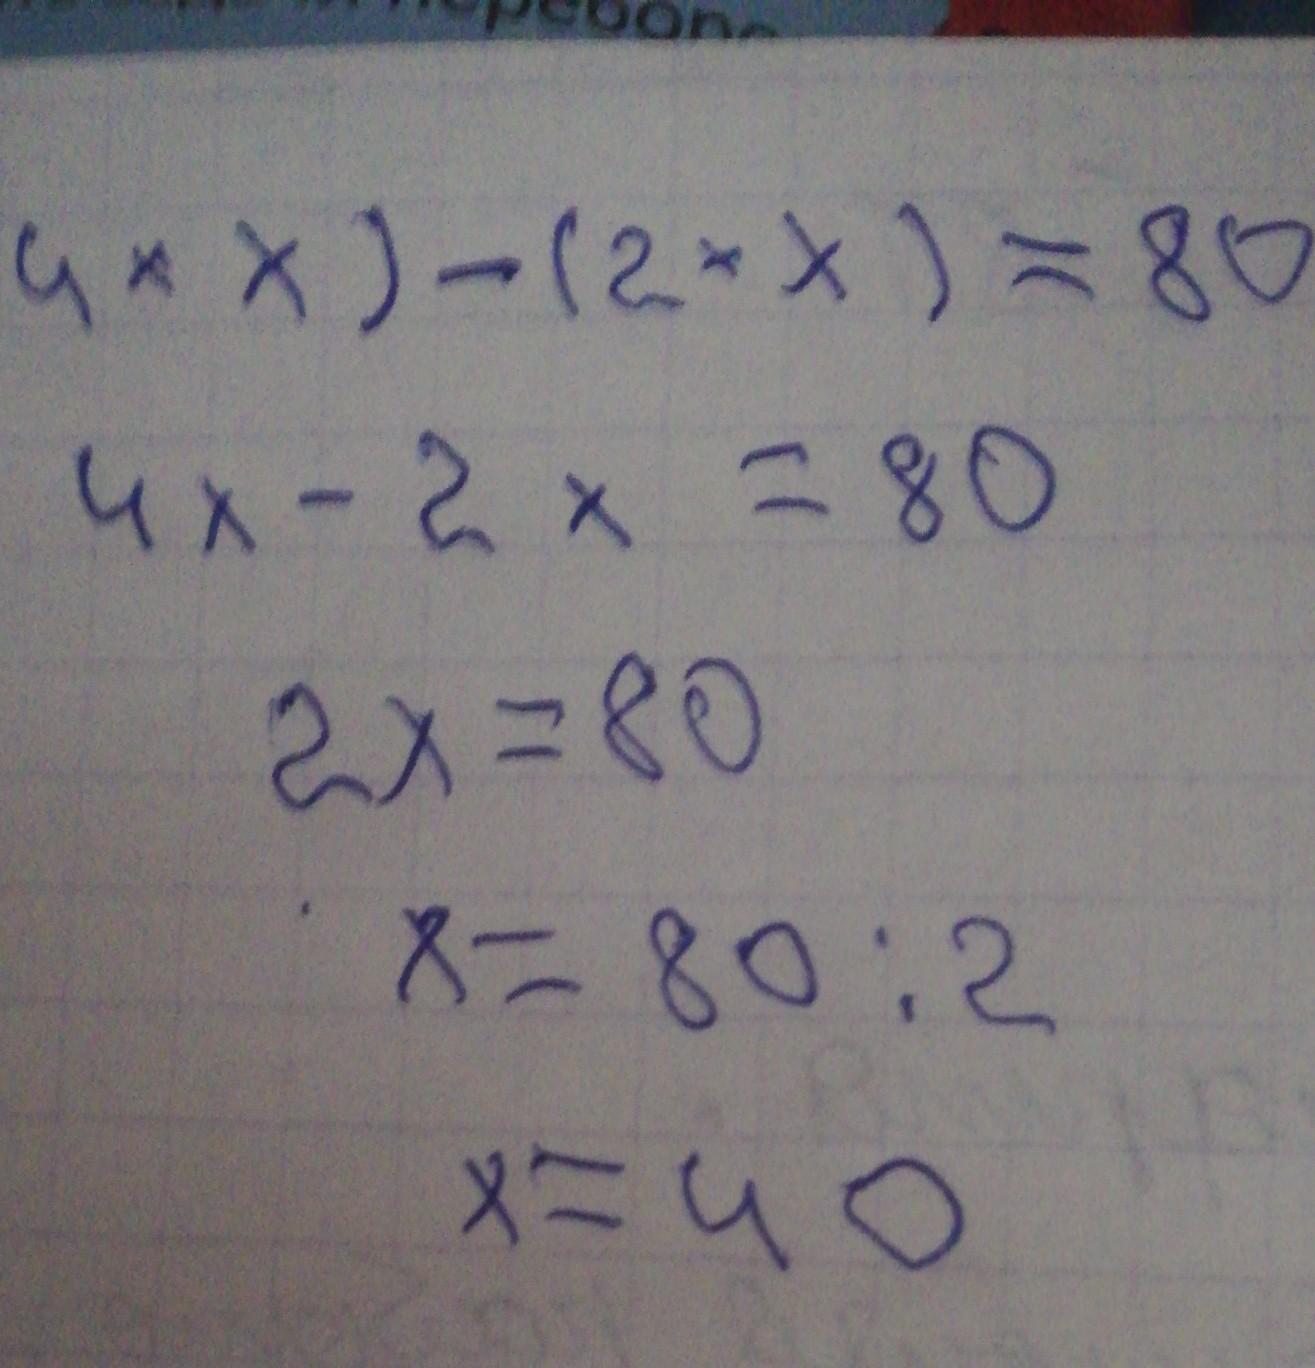 4 × x) - (2 × x) = 80
4x - 2x = 80
2x = 80
x = 80 : 2
x = 40